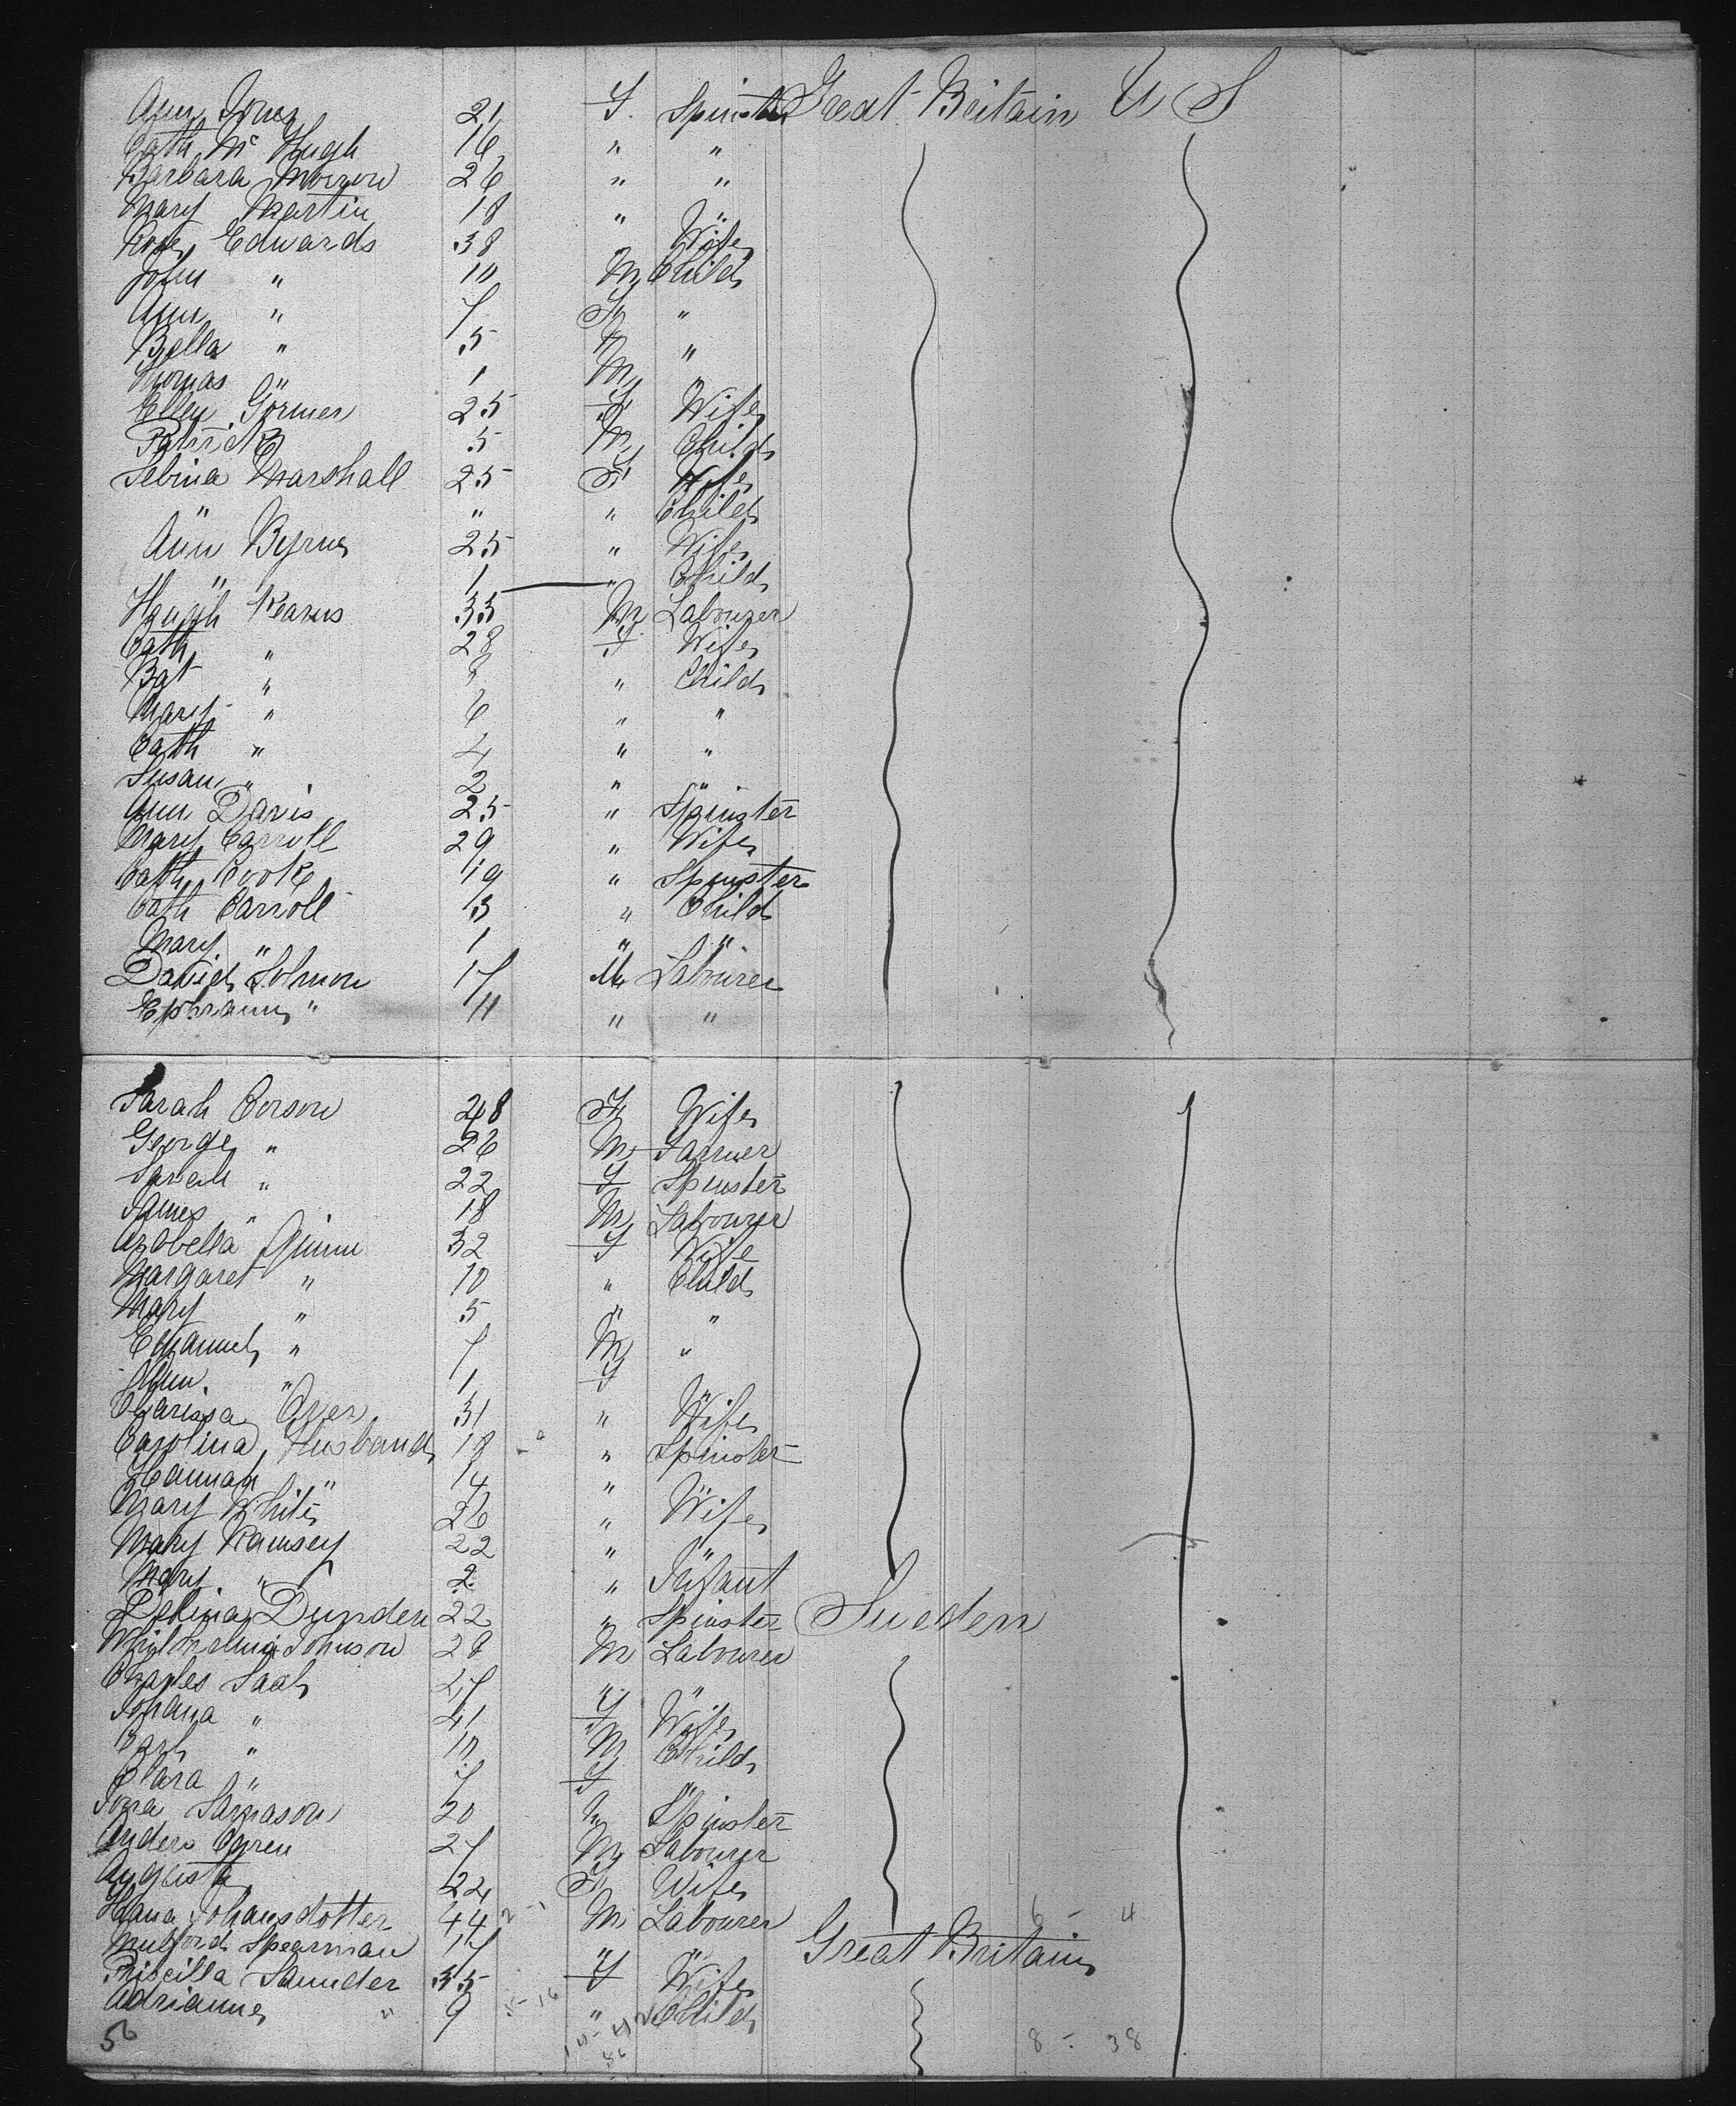 Ann Jones 21 F. Spinster Great Britain U S
Cath Mc Hugh 16 " "
Barbara Morrow 26 " "
Mary Martin 18 " "
Rose Edwards 38 " Wife
John " 10 M Child
Ann " 7 F "
Bella " 5 " "
Thomas " 1 M "
Ellen Gormer 25 F Wife
Patrick 5 M Child
Sebina Marshall 25 F Wife
" " " Child
Ann Byrnes 25 " Wife
" 1 " Child
Hough Kearns 33 M Labourer
Cath " 28 F Wife
Bgt " 8 " Child
Mary " 6 " "
Cath " 4 " "
Susan " 2 " "
Ann Davis 25 " Spinster
Mary Carroll 29 " Wife
Cath Cooke 19 " Spinster
Cath Carroll 3 " Child
Mary " 1 " "
David Solmon 17 M Labourer
Ephraim " 11 " "
Sarah Corson 48 F Wife
George " 26 M Farmer
Sarah " 22 F Spinster
James " 18 M Labourer
Arabella Quinn 32 F Wife
Margaret " 10 " Child
Mary " 5 " "
Emanuel " 7 M "
Ann " 1 F "
Clarissa Over 31 " Wife
Carolina Husband 18 " Spinster
Hannah " 14 " "
Mary White 26 " Wife
Mary Ramsey 22 " "
Mary " 2 " Infant
Dynden 22 " Spinster Sweden
Johnson 28 M Labourer
Charles Saal 27 " "
Johana " 41 F Wife
Carl " 10 M Child
Clara " 7 F "
Samason 20 " Spinster
Anders Ogren 27 M Labourer
Augusta 22 F Wife
Hana Johansdotter 44 M Labourer 6 - 4
Mulford Spearman 17 " " Great Britain
Priscilla Saunder 35 F Wife
Adrianne " 9 " Child
56 8 - 38